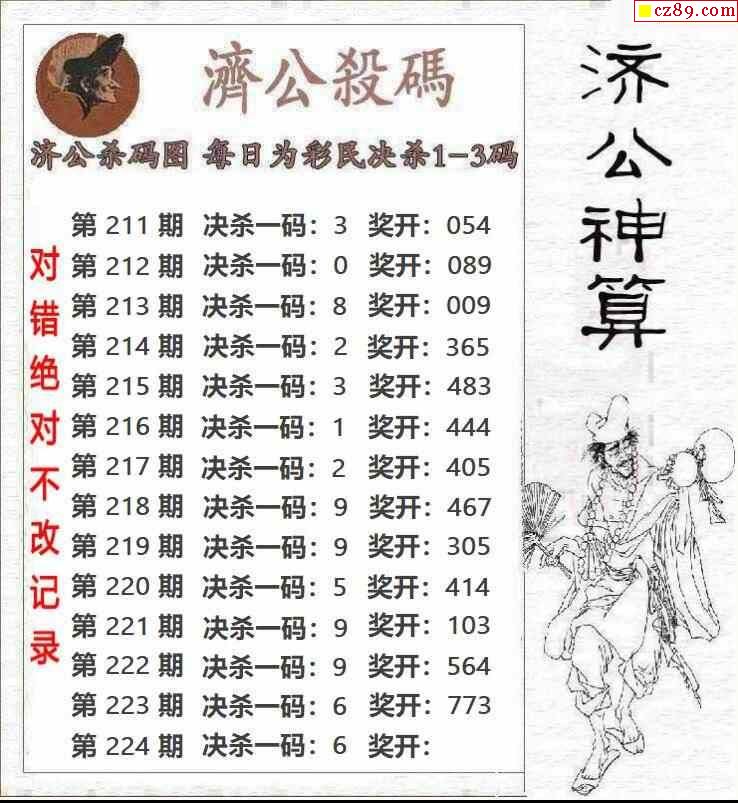 cz89.com
濟公殺碼
济公杀码图 每日为彩民决杀1-3码
第 211 期 决杀一码：3 奖开：054
第 212 期 决杀一码：0 奖开：089
第 213 期 决杀一码：8 奖开：009
第 214 期 决杀一码：2 奖开：365
第 215 期 决杀一码：3 奖开：483
第 216 期 决杀一码：1 奖开：444
第 217 期 决杀一码：2 奖开：405
第 218 期 决杀一码：9 奖开：467
第 219 期 决杀一码：9 奖开：305
第 220 期 决杀一码：5 奖开：414
第 221 期 决杀一码：9 奖开：103
第 222 期 决杀一码：9 奖开：564
第 223 期 决杀一码：6 奖开：773
第 224 期 决杀一码：6 奖开：
对错绝对不改记录
济公神算